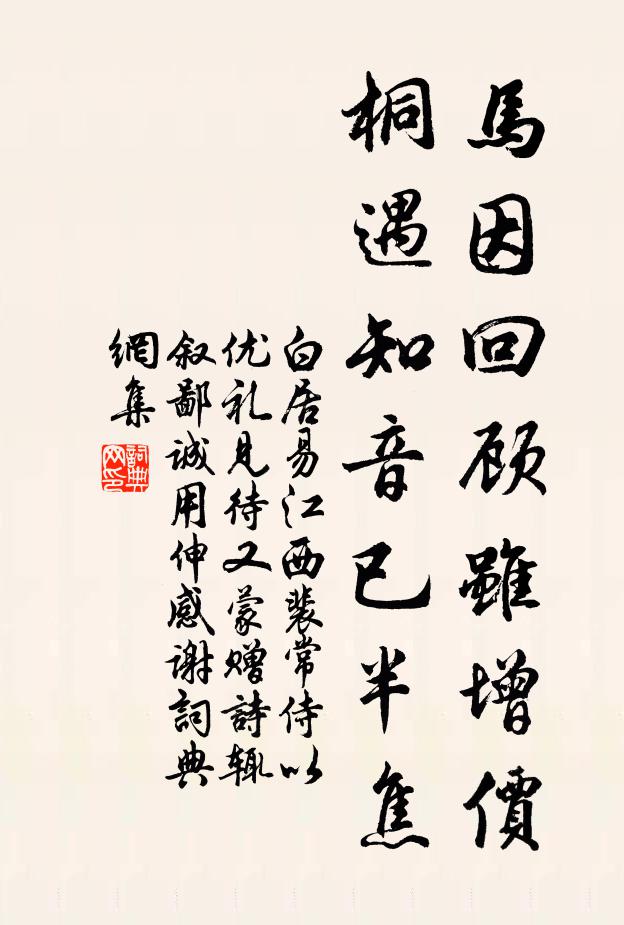 馬因回顾雖增價
桐遇知音已半焦
白居易江西裴常侍以
优礼見待又蒙赠詩辄
叙鄙诚用伸感谢詞典
網集
詞典
网印